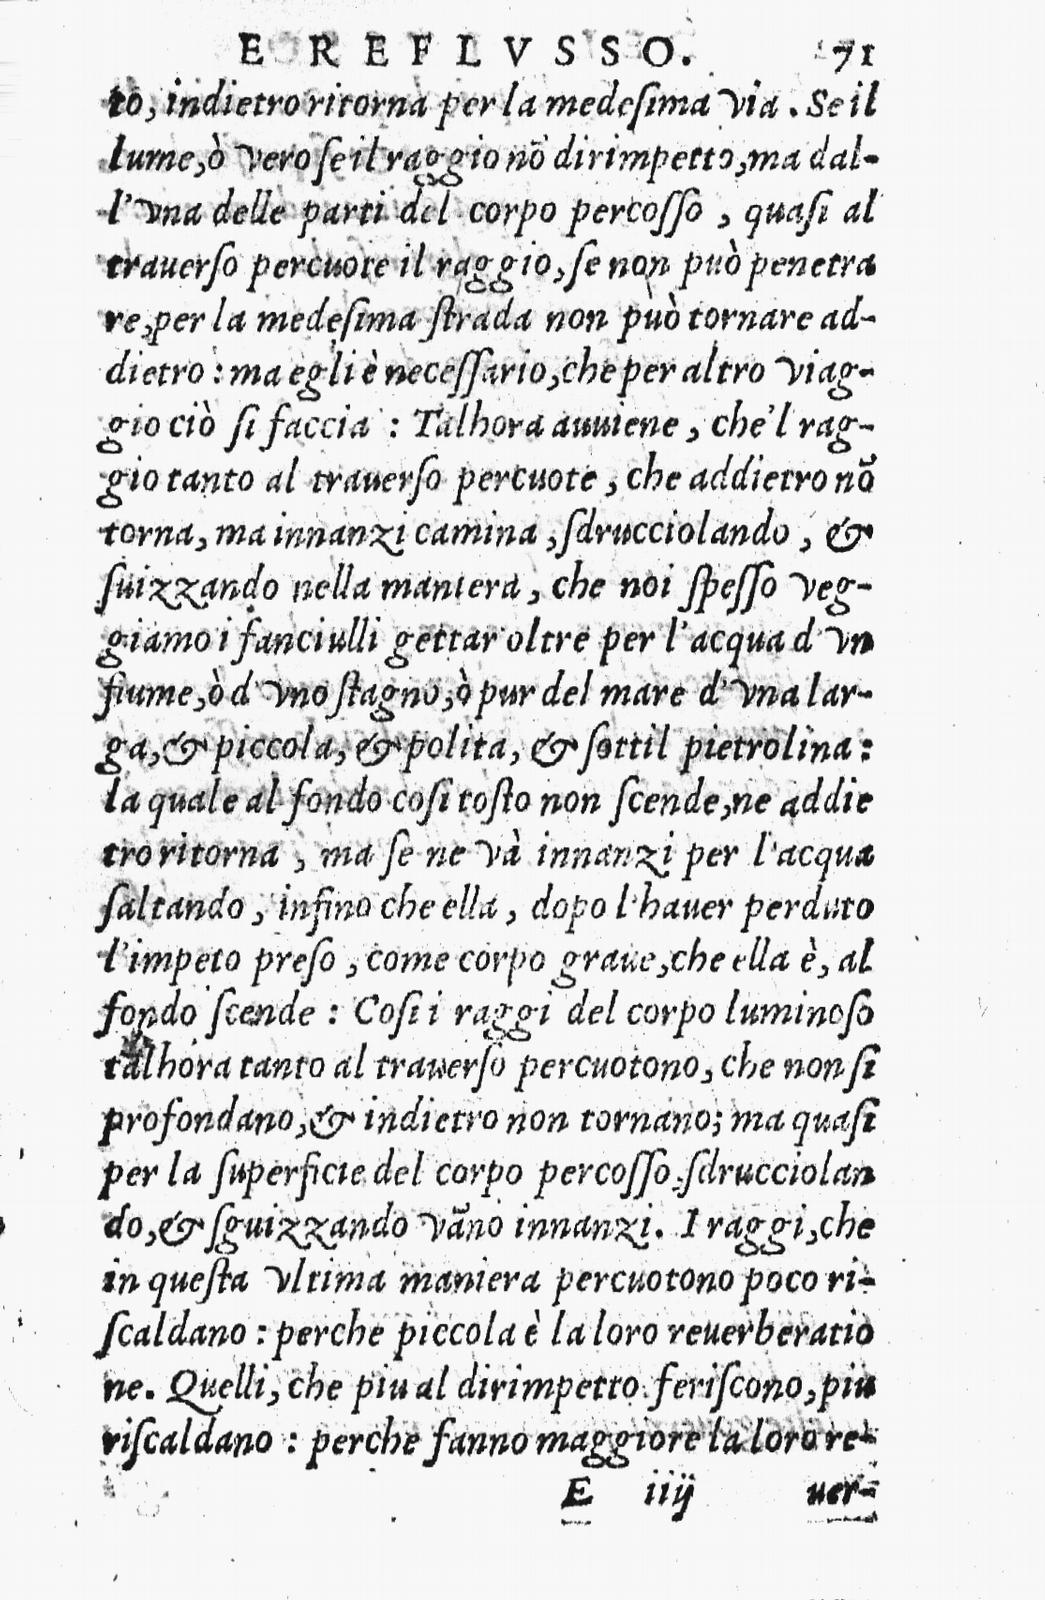 E REFLVSSO. 71
to, indietro ritorna per la medeſima via. Se il
lume, ò vero ſe il raggio nõ dirimpetto, ma dal-
l'vna delle parti del corpo percoſſo, quaſi al
trauerſo percuote il raggio, ſe non può penetra
re, per la medeſima ſtrada non può tornare ad-
dietro: ma egli è neceſſario, che per altro viag-
gio ciò ſi faccia: Talhora auuiene, che'l rag-
gio tanto al trauerſo percuote, che addietro nõ
torna, ma innanzi camina, ſdrucciolando, &
ſuizzando nella maniera, che noi ſpeſſo veg-
giamo i fanciulli gettar oltre per l'acqua d'vn
fiume, ò d'vno ſtagno, ò pur del mare d'vna lar-
ga, & piccola, & polita, & ſottil pietrolina:
la quale al fondo coſi toſto non ſcende, ne addie
tro ritorna, ma ſe ne và innanzi per l'acqua
ſaltando, infino che ella, dopo l'hauer perduto
l'impeto preſo, come corpo graue, che ella è, al
fondo ſcende: Coſi i raggi del corpo luminoſo
talhora tanto al trauerſo percuotono, che non ſi
profondano, & indietro non tornano; ma quaſi
per la ſuperficie del corpo percoſſo, ſdrucciolan
do, & ſguizzando vãno innanzi. I raggi, che
in queſta vltima maniera percuotono poco ri-
ſcaldano: perche piccola è la loro reuerberatio
ne. Quelli, che piu al dirimpetto feriſcono, piu
riſcaldano: perche fanno maggiore la loro re-
E iiij uer-